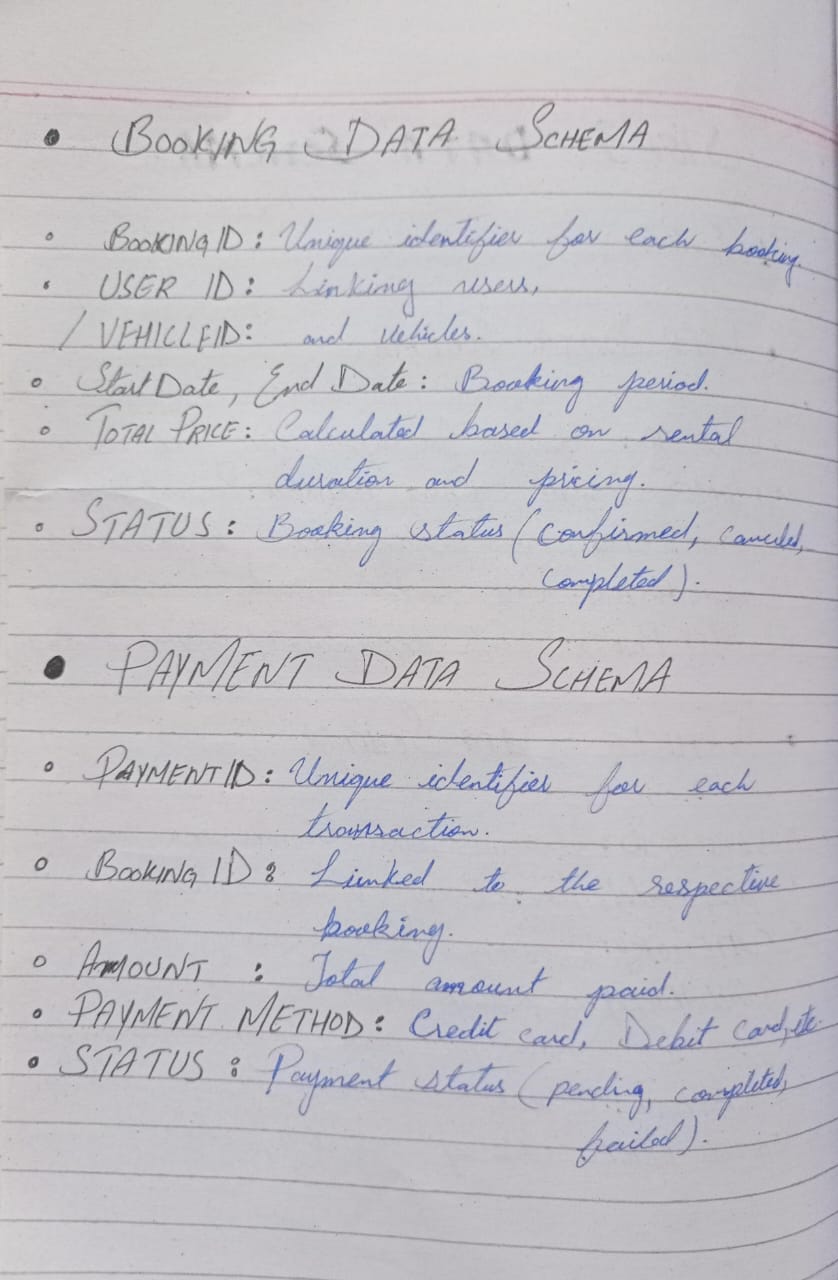 • BOOKING DATA SCHEMA
◦ BOOKING ID : Unique identifier for each booking.
• USER ID : Linking users,
/ VEHICLE ID : and vehicles.
◦ Start Date, End Date : Booking period.
◦ TOTAL PRICE : Calculated based on rental
duration and pricing.
◦ STATUS : Booking status (confirmed, canceled,
completed).
• PAYMENT DATA SCHEMA
◦ PAYMENT ID : Unique identifier for each
transaction.
◦ BOOKING ID : Linked to the respective
booking.
◦ AMOUNT : Total amount paid.
◦ PAYMENT METHOD : Credit card, Debit Card, etc.
◦ STATUS : Payment status (pending, completed,
failed).